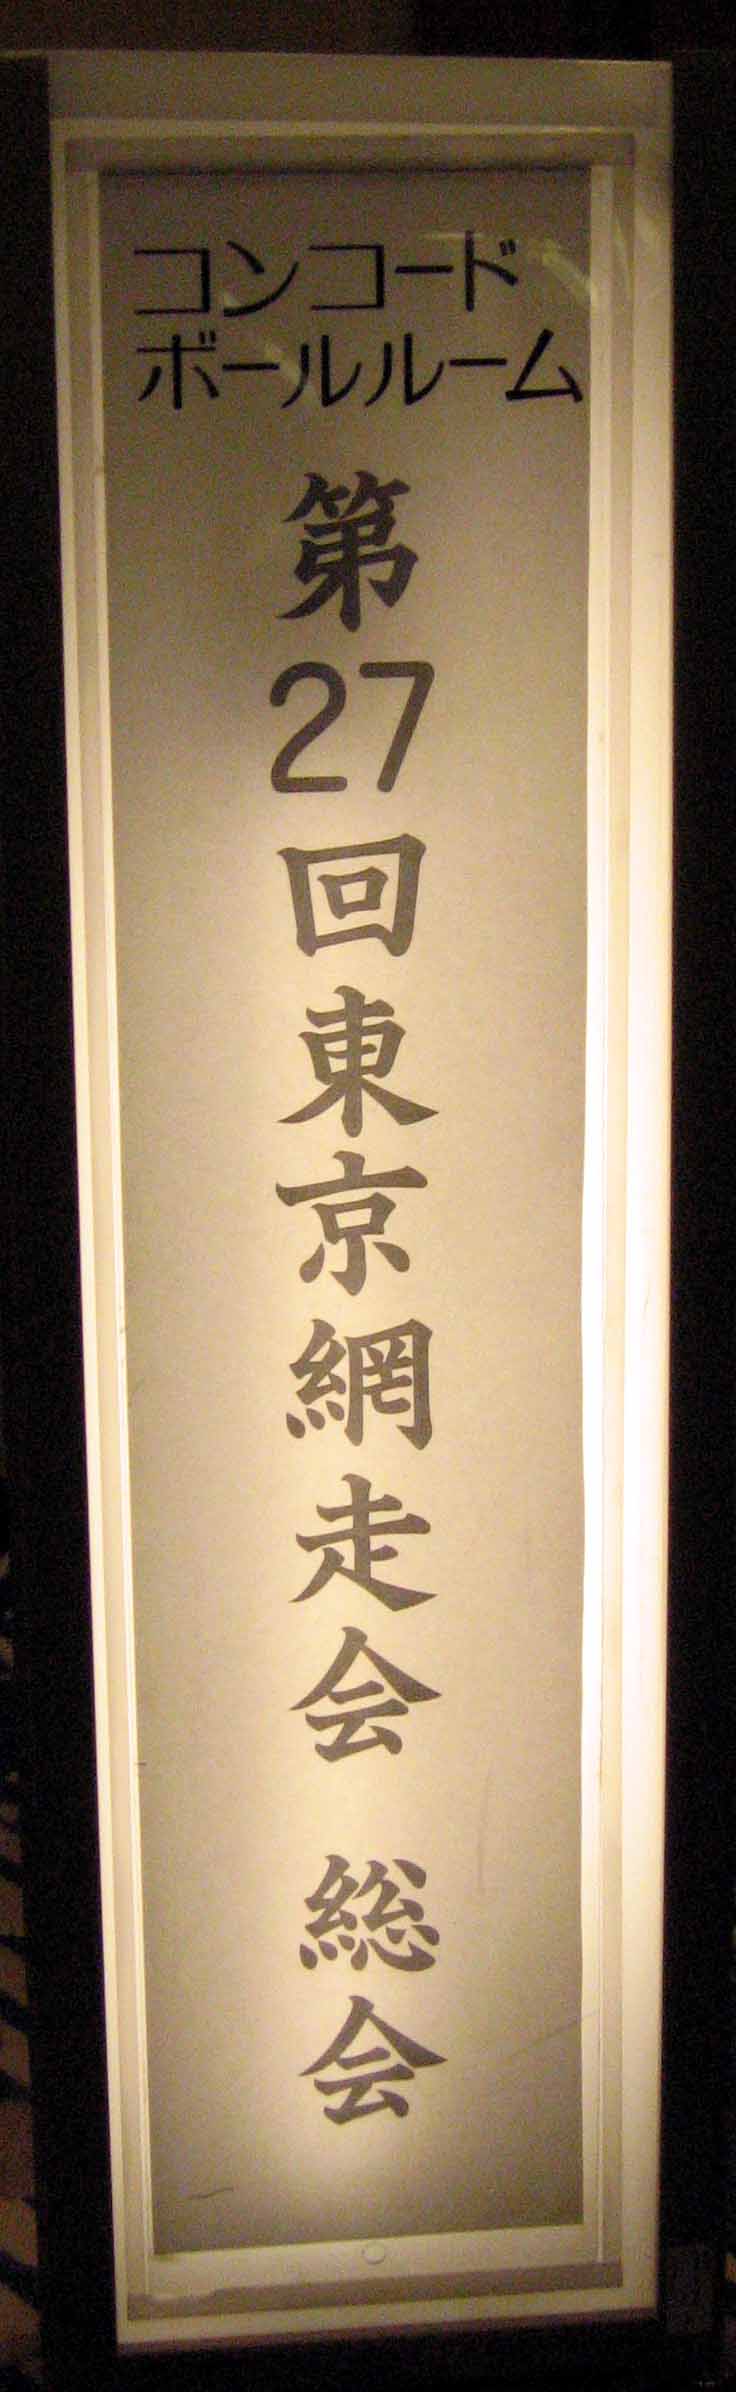 コンコード
ボールルーム
第27回東京網走会 総会